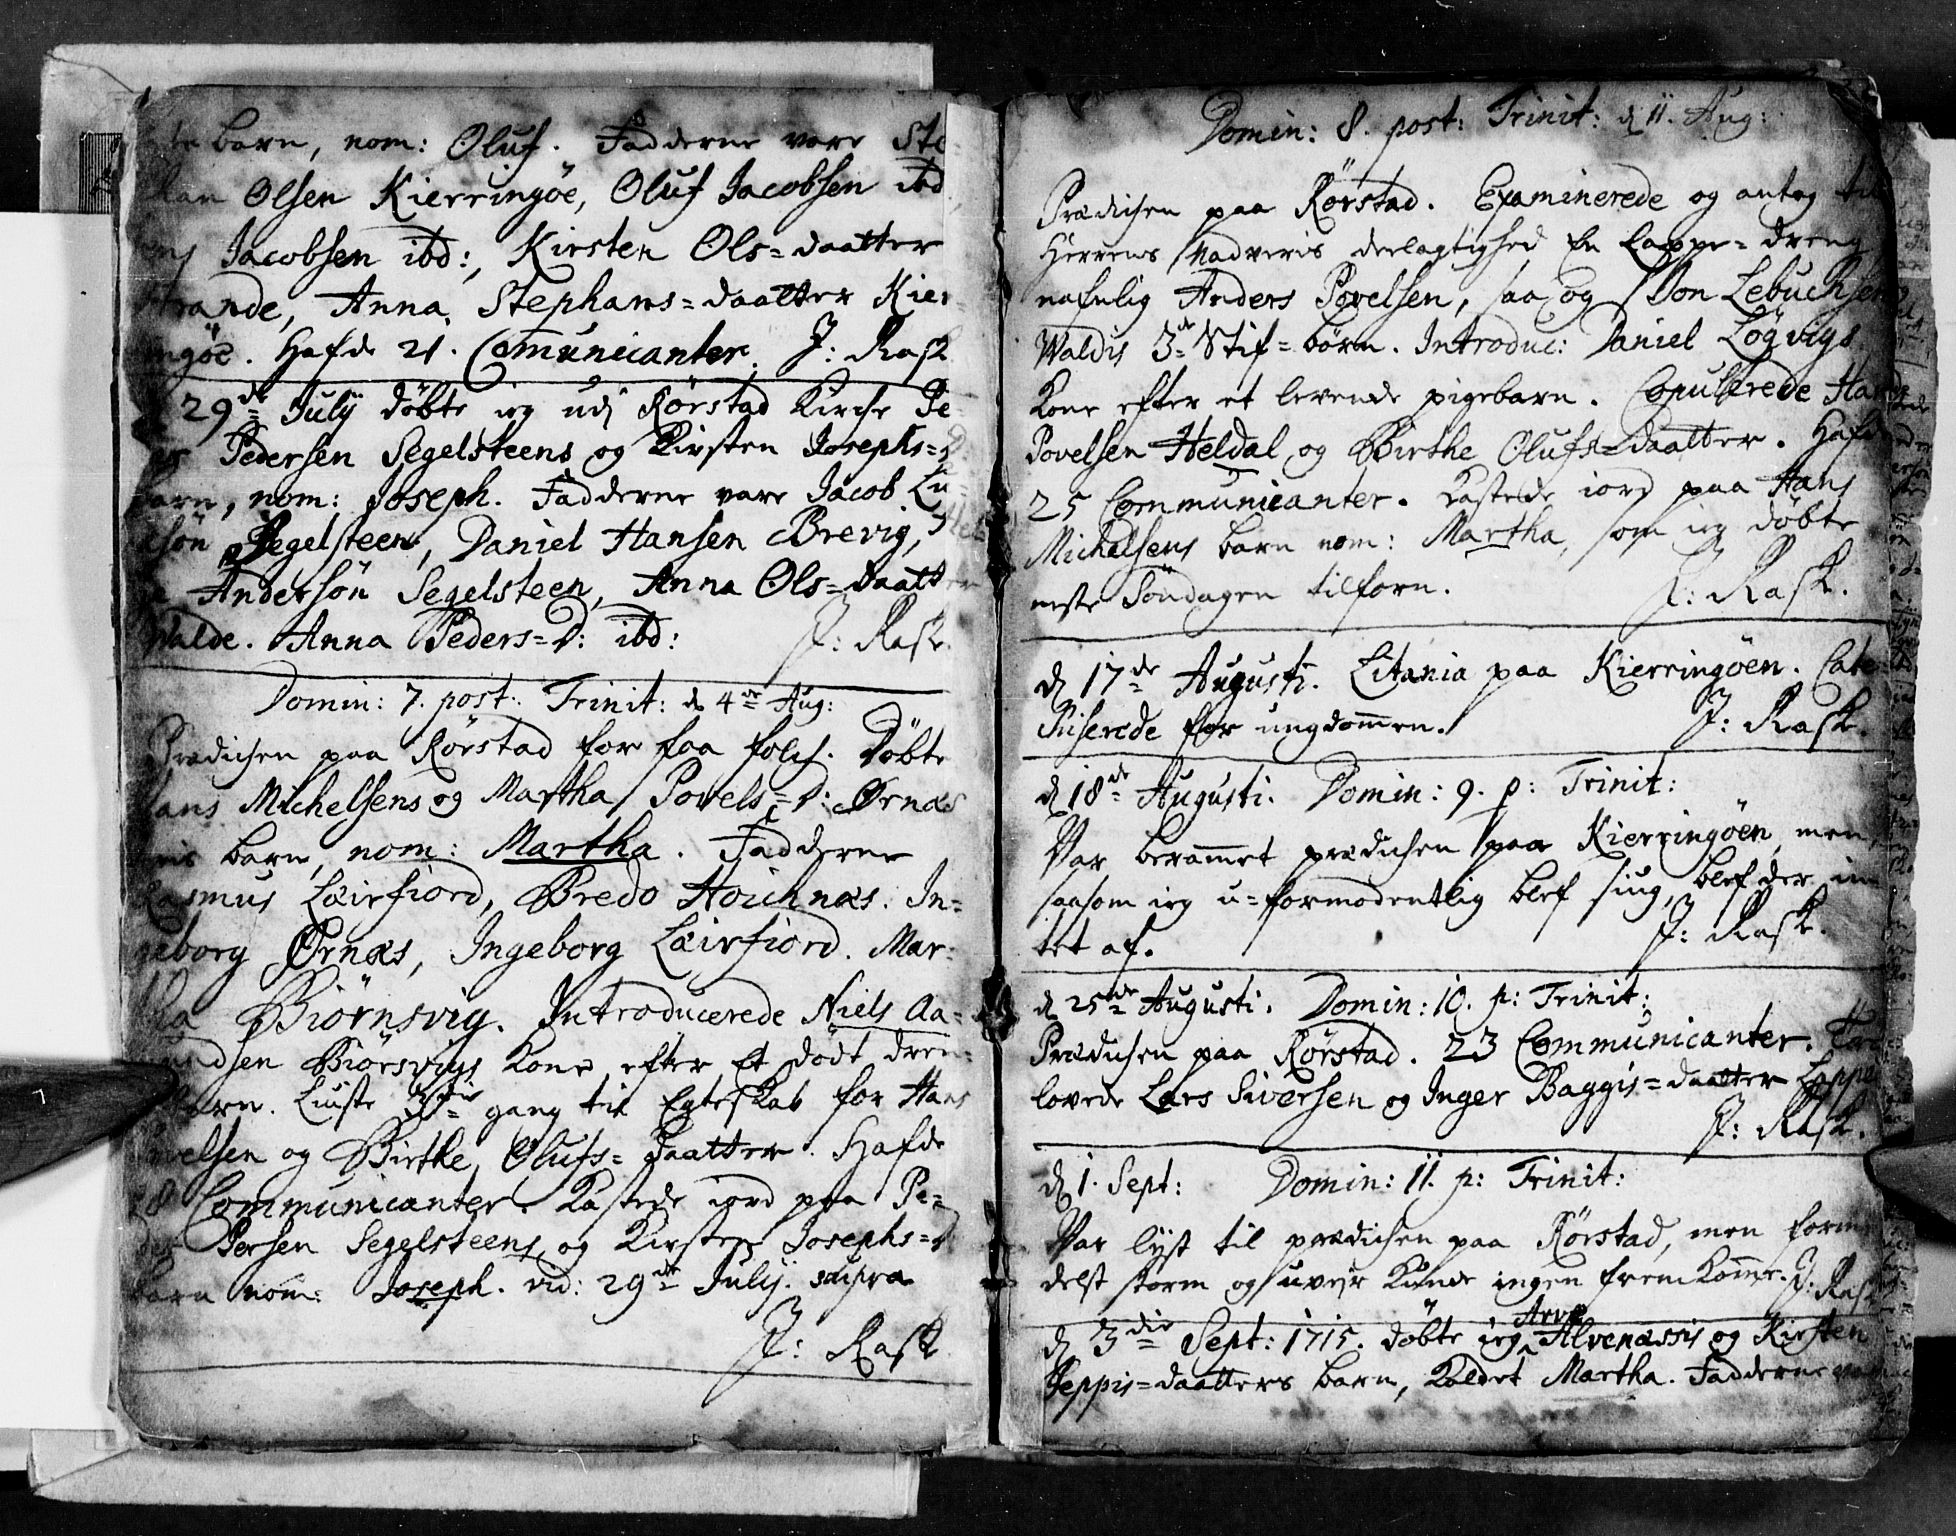 barn, nom: Oluf. Fadderne vare Ste-
Olsen Kierringöe, Oluf Jacobsen ibd
Jacobsen ibd:, Kirsten Ols=daatter
Strande, Anna Stephans=daatter Kier-
ingöe. Hafde 21. Communicanter. J: Rask
29de Julij döbte ieg udj Rörstad Kirche Pe-
Pedersen Segelsteens og Kirsten Josephs=D:
barn, nom: Joseph. Fadderne vare Jacob Lu-
Segelsteen, Daniel Hansen Brevig,
Andersön Segelsteen, Anna Ols=daatter
Walde. Anna Peders=D: ibd: J: Rask.
Domin: 7. post: Trinit: d 4de Aug:
Prædichen paa Rörstad for faa folch. Döbte
Hans Michelsens og Martha Povels=D: Ørnæs
barn, nom: Martha. Fadderne
Rasmus Leirfiord, Bredo Hoichnæs. In=
geborg Ørnæs, Ingeborg Leirfiord. Mar-
tha Biörnsvig. Introducerede Niels Aa=
mundsen Biörsvigs Kone efter et dödt dren-
barn. Liuste 3die gang til Egteskab for Hans
Povelsen og Birthe Olufs=daatter. Hafde
28 Communicanter. Kastede iord paa Pe=
der Persen Segelsteens og Kirsten Josephs=D
barn nom: Joseph. vid: 29de Julij. supra
J: Rask
Domin: 8. post: Trinit: d 11. Aug:
Prædichen paa Rörstad. Examinerede og antog til
Herrens Nadveris deelagtighed En Lappe=dreng
nafnlig Anders Povelsen, saa og Jon Lebuchsen
Waldis 3de Stif=börn. Introduc: Daniel Lögvigs
Kone efter et levende pigebarn. Copulerede Hans
Povelsen Heldal og Birthe Olufs=daatter. Hafde
25 Communicanter. Kastede iord paa Hans
Michelsens barn nom: Martha, som ieg döbte
neste Söndagen tilforn. J: Rask.
d 17de Augusti. Litania paa Kierringöen. Cate-
chiserede for ungdommen. J: Rask.
d 18de Augusti. Domin: 9. p: Trinit:
Var berammet prædichen paa Kierringöen, men
saasom ieg u=formodentlig blef siug, blef der in
tet af. J: Rask.
d 25de Augusti. Domin: 10. p: Trinit:
Prædichen paa Rörstad. 23 Communicanter. Tro
lovede Lars Siversen og Inger Baggis=daatter Lappe
J: Rask.
d 1. Sept: Domin: 11. p: Trinit:
Var lyst til prædichen paa Rörstad, men forme
delst storm og uveir kunde ingen fremkomme. J: Rask
d 3die Sept: 1715. döbte ieg Arve Alvenæssis og Kirsten
Jeppis=daatters barn, kaldet Martha. Fadderne vare